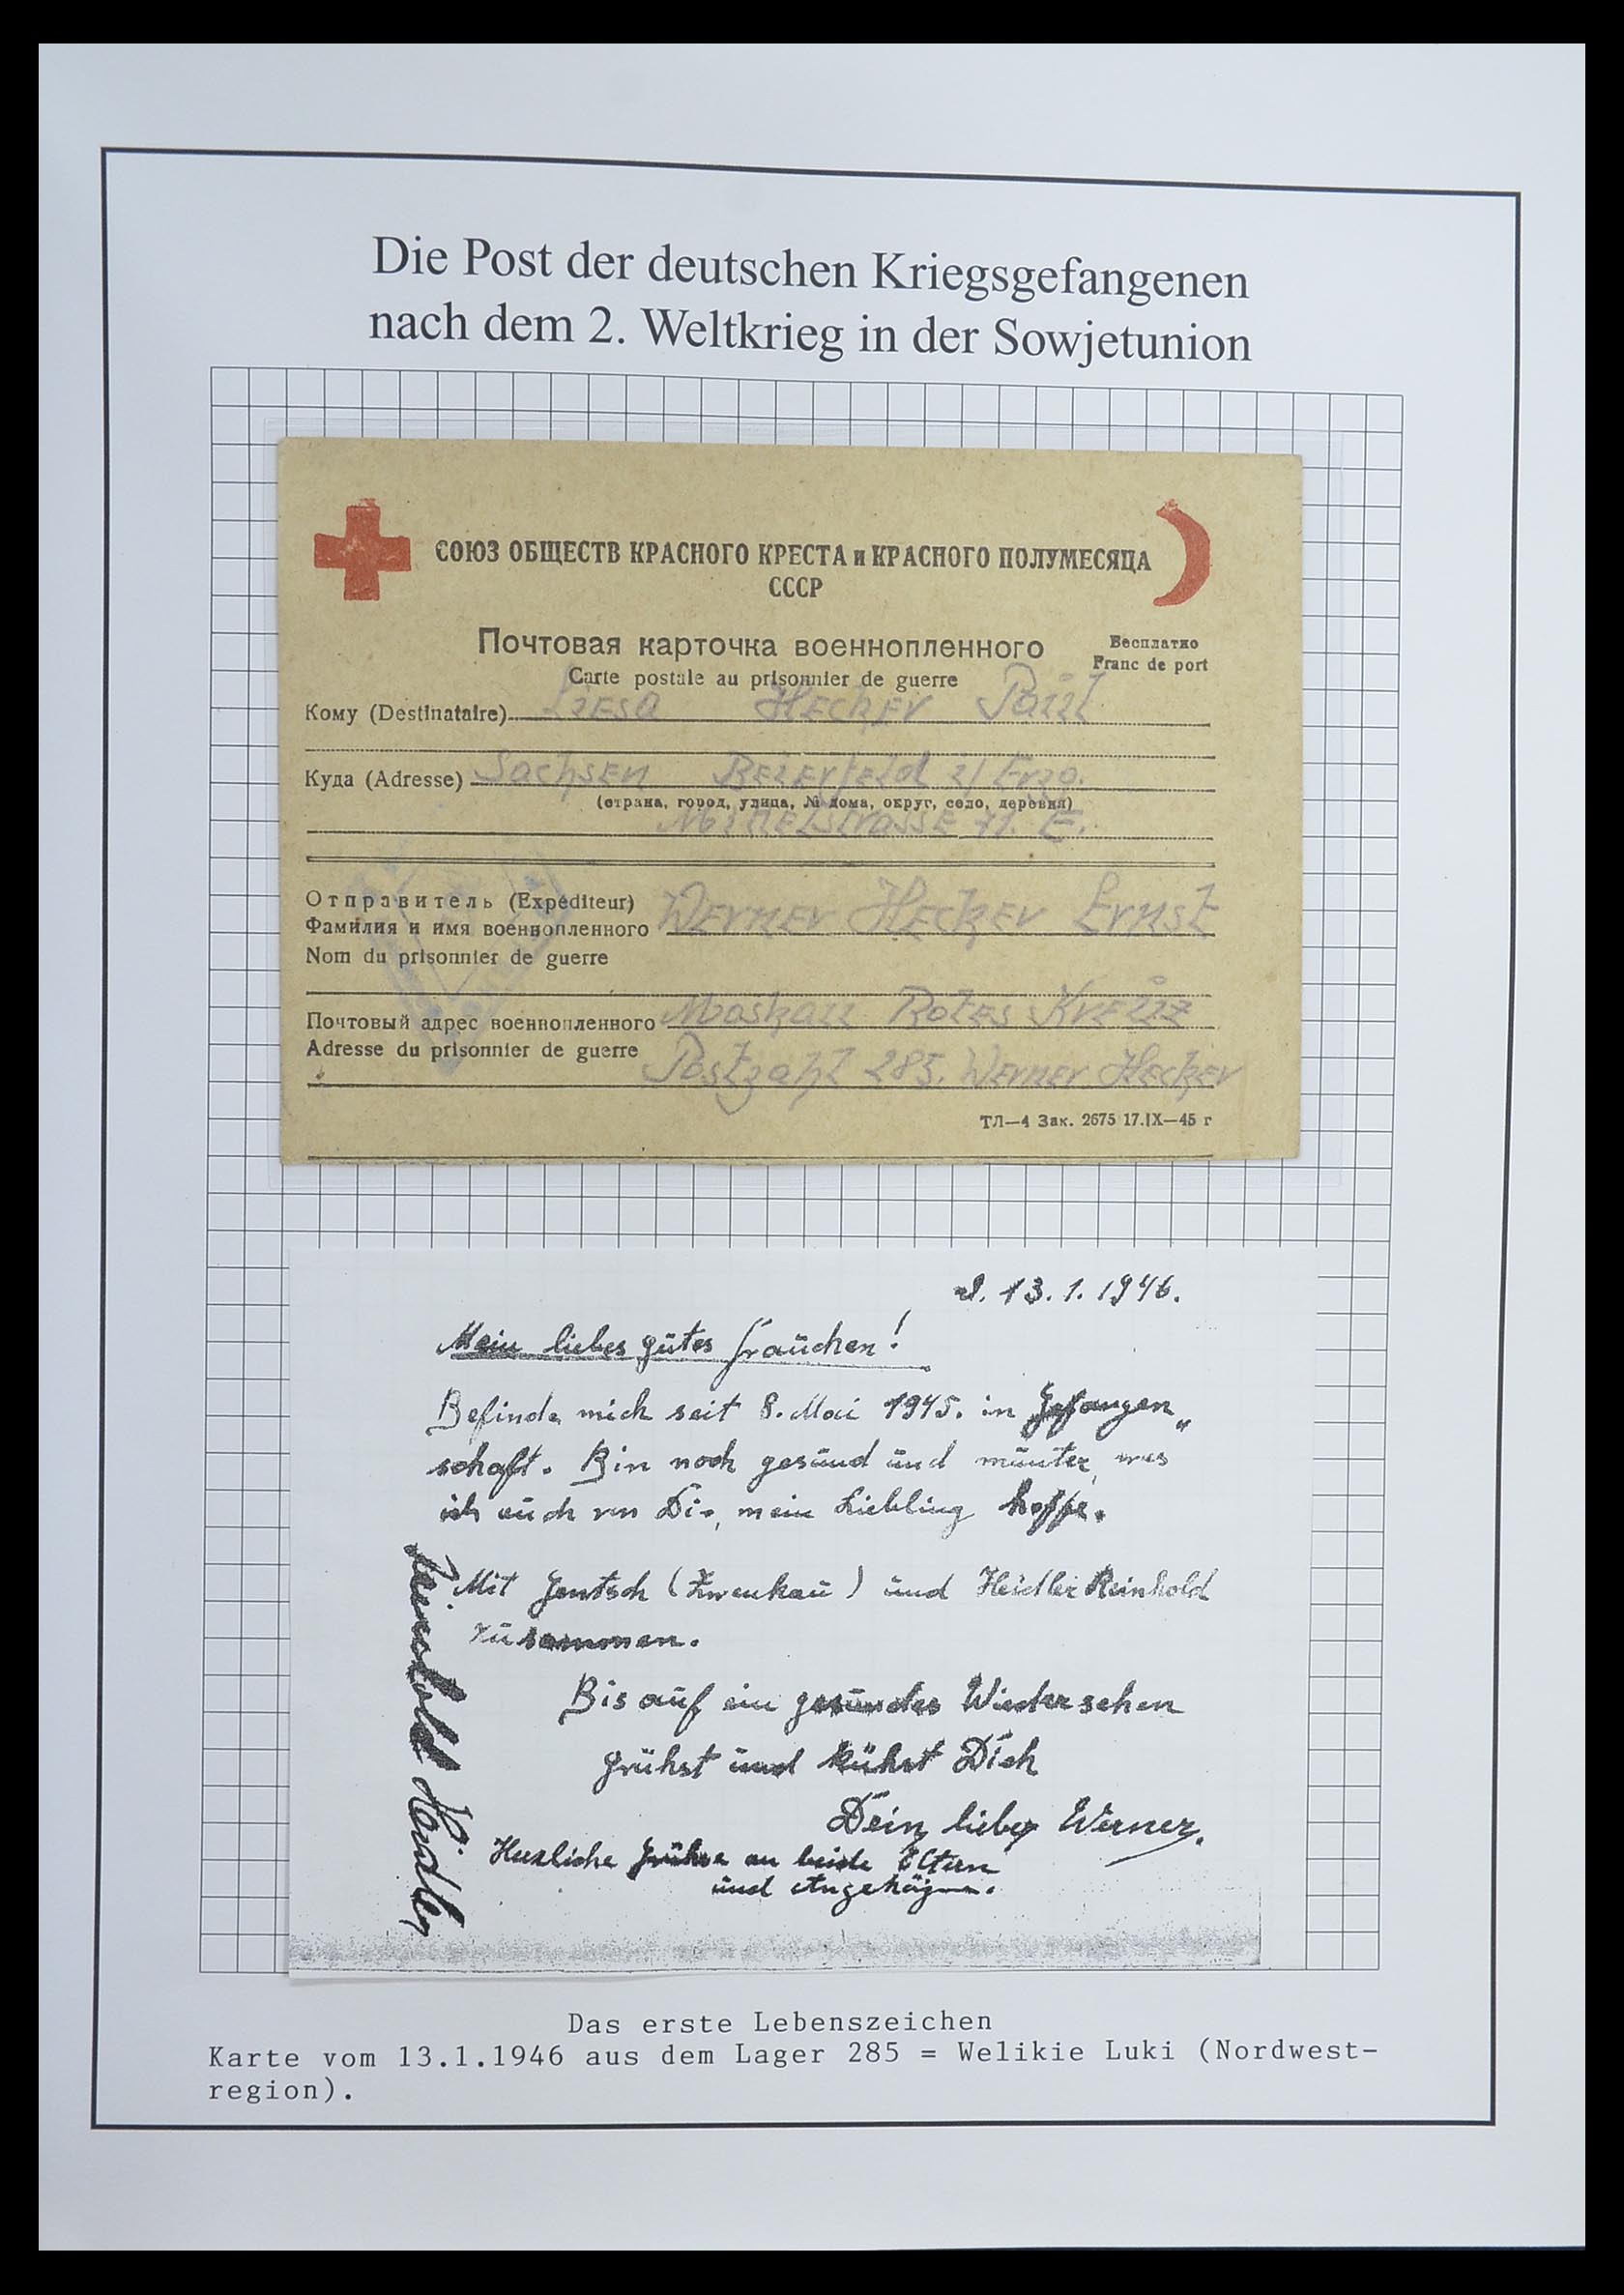 Die Post der deutschen Kriegsgefangenen
nach dem 2. Weltkrieg in der Sowjetunion
СОЮЗ ОБЩЕСТВ КРАСНОГО КРЕСТА и КРАСНОГО ПОЛУМЕСЯЦА
СССР
Почтовая карточка военнопленного
Бесплатно
Carte postale au prisonnier de guerre
Franc de port
Кому (Destinataire) Hecker Paul
Куда (Adresse) Sachsen Beierfeld i/ Erzg.
(страна, город, улица, № дома, округ, село, деревня)
Mittelstrasse 71. E.
Отправитель (Expéditeur)
Фамилия и имя военнопленного Werner Hecker Ernst
Nom du prisonnier de guerre
Почтовый адрес военнопленного Moskau Rotes Kreuz
Adresse du prisonnier de guerre Postzahl 285. Werner Hecker
ТЛ—4 Зак. 2675 17.IX—45 г
13.1.1946.
Mein liebes gutes Frauchen!
Befinde mich seit 8. Mai 1945. in Gefangen„
schaft. Bin noch gesund und munter, was
ich auch von Dir, mein Liebling hoffe.
Mit Jentsch (Zwenkau) und Heidler Reinhold
zusammen.
Bis auf ein gesundes Wiedersehen
grühst und kühst Dich
Dein lieber Werner.
Herzliche Grühse an beide Eltern
und Angehörgen.
Reinhold Heidler
Das erste Lebenszeichen
Karte vom 13.1.1946 aus dem Lager 285 = Welikie Luki (Nordwest-
region).